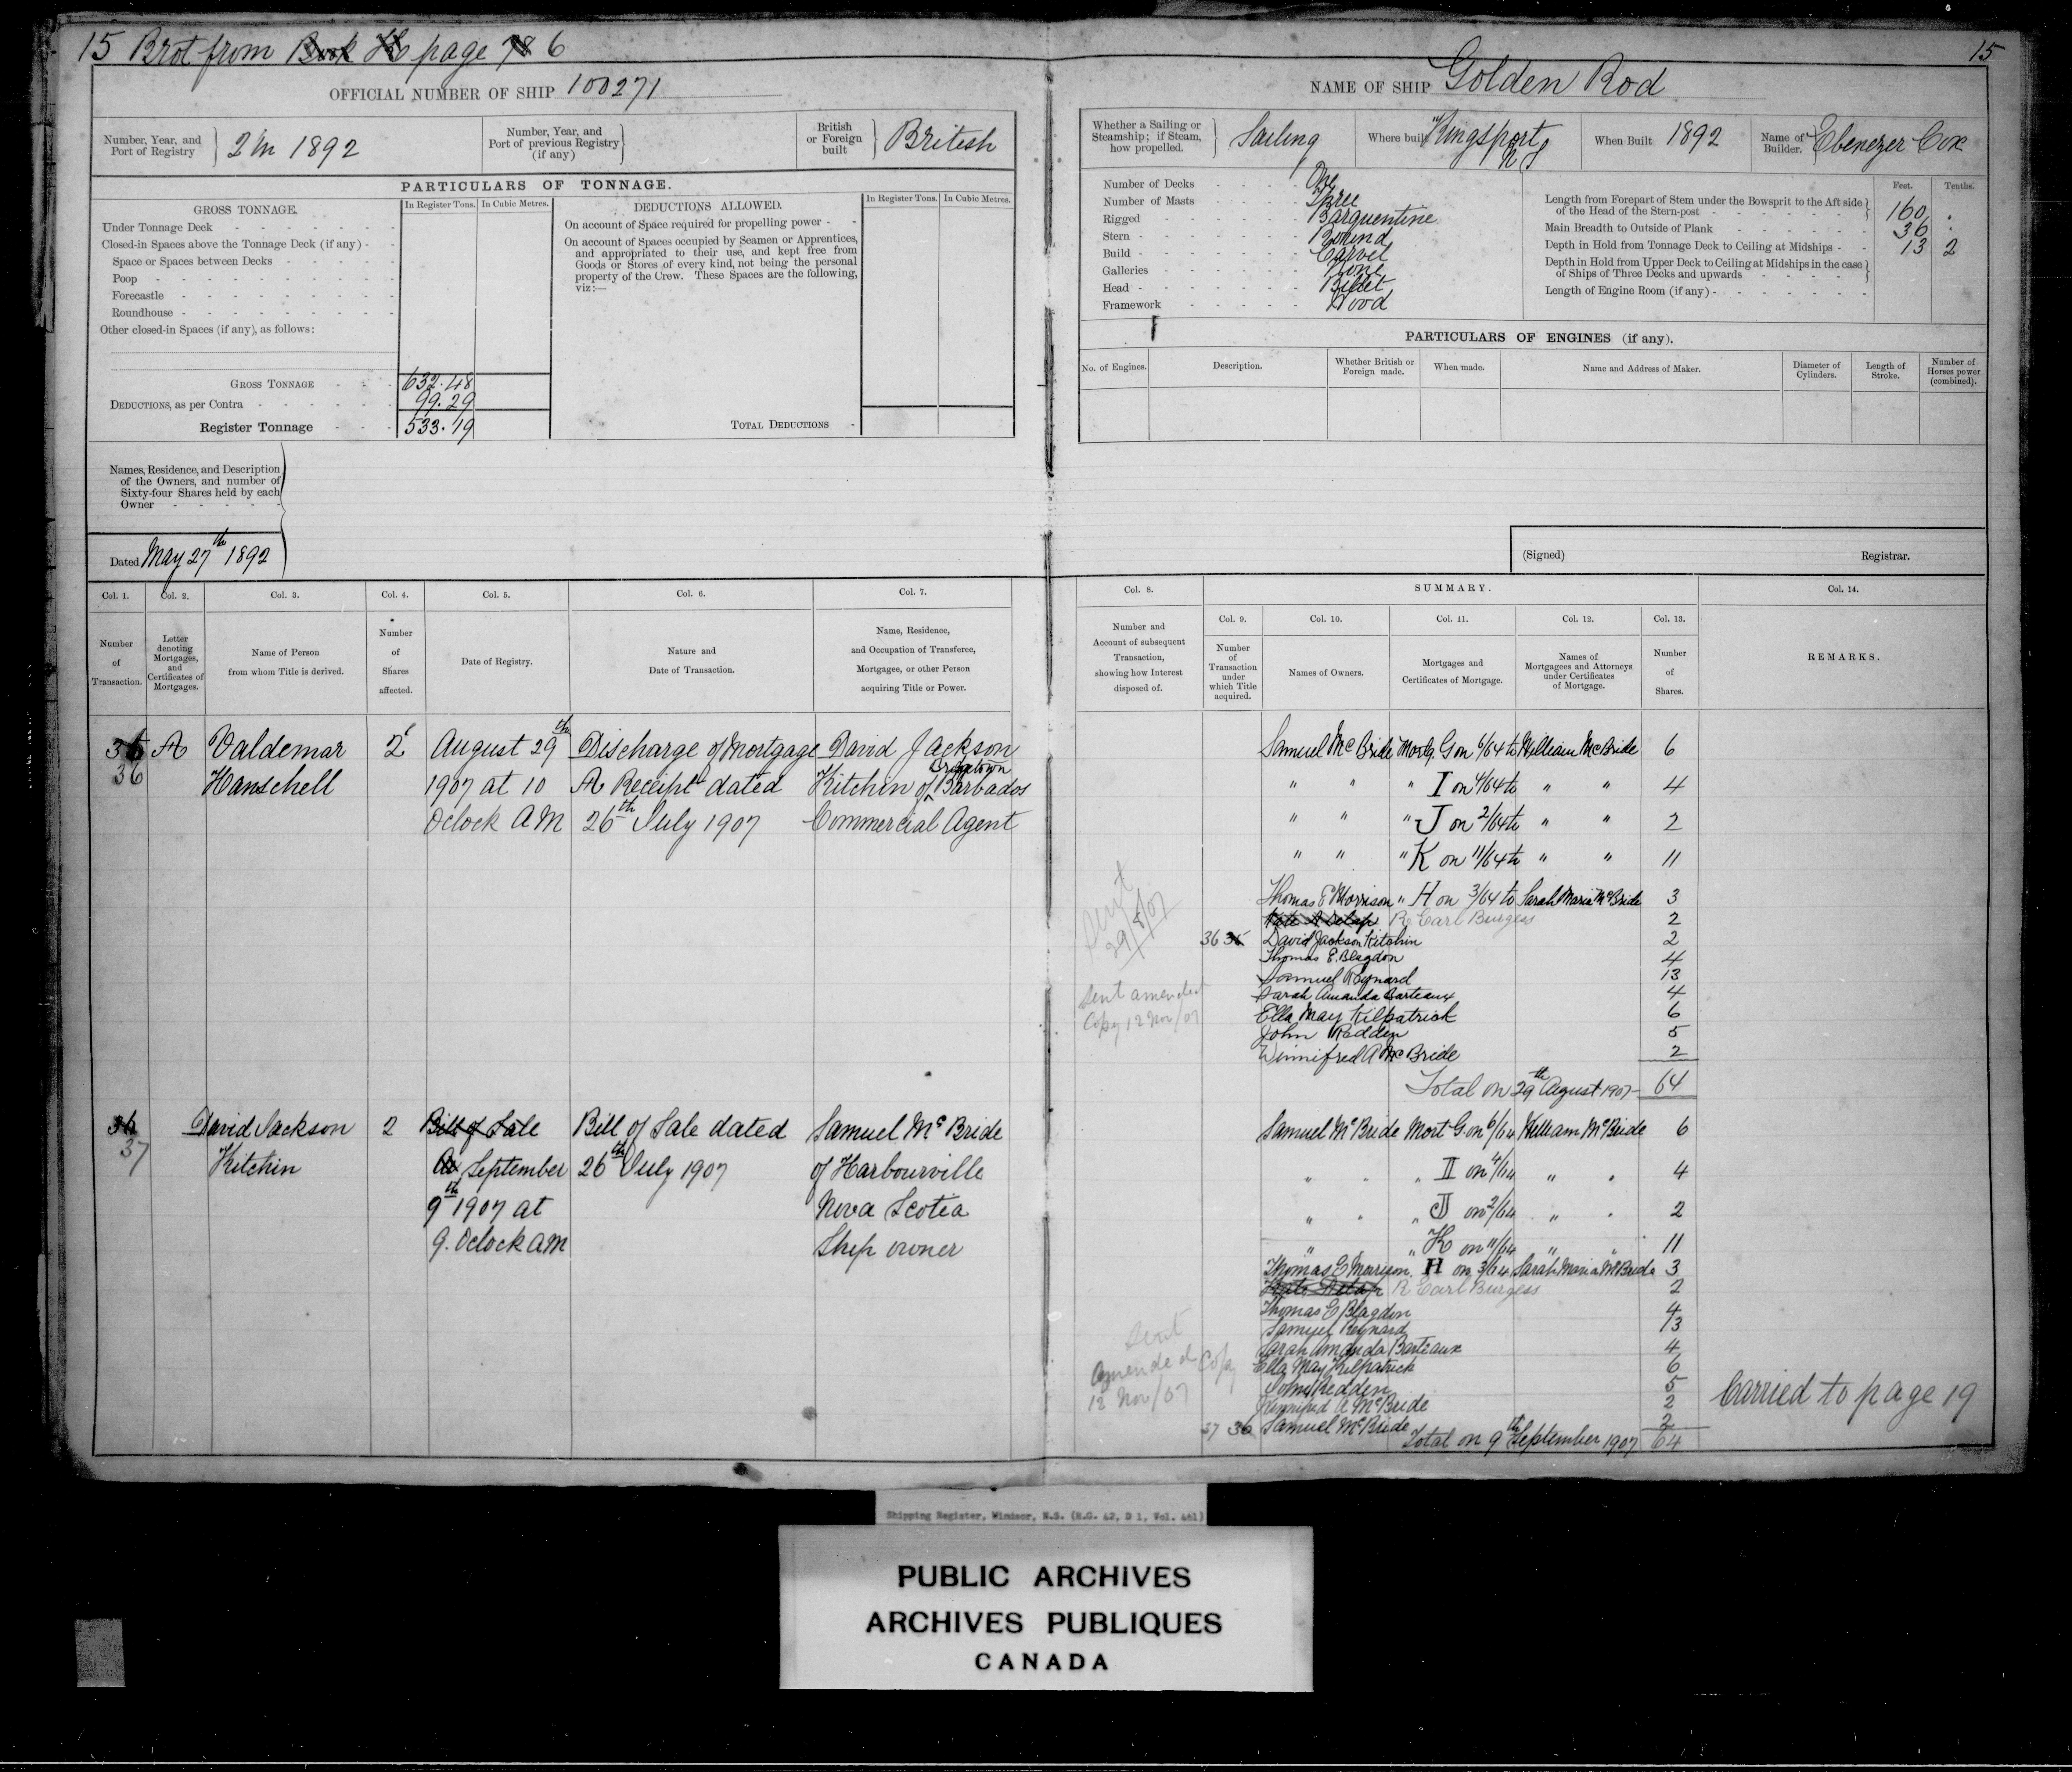 15 Brot from Book K page 78 6
15
OFFICIAL NUMBER OF SHIP 100271
NAME OF SHIP Golden Rod
Number, Year, and Port of Registry } 2 in 1892
Number, Year, and Port of previous Registry (if any) }
British or Foreign built } British
Whether a Sailing or Steamship; if Steam, how propelled. } Sailing
Where built Kingsport N S
When Built 1892
Name of Builder. } Ebenezer Cox
PARTICULARS OF TONNAGE.
GROSS TONNAGE.
In Register Tons. In Cubic Metres.
DEDUCTIONS ALLOWED.
In Register Tons. In Cubic Metres.
Under Tonnage Deck
Closed-in Spaces above the Tonnage Deck (if any)
Space or Spaces between Decks
Poop
Forecastle
Roundhouse
Other closed-in Spaces (if any), as follows:
On account of Space required for propelling power
On account of Spaces occupied by Seamen or Apprentices,
and appropriated to their use, and kept free from
Goods or Stores of every kind, not being the personal
property of the Crew. These Spaces are the following,
viz:—
GROSS TONNAGE 632.48
DEDUCTIONS, as per Contra 99.29
Register Tonnage 533.19
TOTAL DEDUCTIONS
Number of Decks One
Number of Masts Three
Rigged Barquentine
Stern Round
Build Carvel
Galleries None
Head Billet
Framework Wood
Feet. Tenths.
Length from Forepart of Stem under the Bowsprit to the Aft side
of the Head of the Stern-post } 160 .
Main Breadth to Outside of Plank 36 .
Depth in Hold from Tonnage Deck to Ceiling at Midships 13 2
Depth in Hold from Upper Deck to Ceiling at Midships in the case
of Ships of Three Decks and upwards }
Length of Engine Room (if any)
PARTICULARS OF ENGINES (if any).
No. of Engines.
Description.
Whether British or Foreign made.
When made.
Name and Address of Maker.
Diameter of Cylinders.
Length of Stroke.
Number of Horses power (combined).
Names, Residence, and Description
of the Owners, and number of
Sixty-four Shares held by each
Owner
Dated May 27th 1892
(Signed) Registrar.
Col. 1. Col. 2. Col. 3. Col. 4. Col. 5. Col. 6. Col. 7.
Number of Transaction.
Letter denoting Mortgages, and Certificates of Mortgages.
Name of Person from whom Title is derived.
Number of Shares affected.
Date of Registry.
Nature and Date of Transaction.
Name, Residence, and Occupation of Transferee, Mortgagee, or other Person acquiring Title or Power.
Col. 8. SUMMARY. Col. 14.
Number and Account of subsequent Transaction, showing how Interest disposed of.
Col. 9. Col. 10. Col. 11. Col. 12. Col. 13.
Number of Transaction under which Title acquired.
Names of Owners.
Mortgages and Certificates of Mortgage.
Names of Mortgagees and Attorneys under Certificates of Mortgage.
Number of Shares.
REMARKS.
35 A Valdemar 2 August 29th Discharge of Mortgage David Jackson
36 Hanschell 1907 at 10 A Receipt dated Kitchin of Bridgetown Barbados
Oclock AM 26th July 1907 Commercial Agent
Samuel McBride Mortg. G on 6/64 to William McBride 6
" " " I on 4/64 to " " 4
" " " J on 2/64 to " " 2
" " " K on 11/64 to " " 11
Thomas E Morrison " H on 3/64 to Sarah Maria McBride 3
Kate A Delap R Earl Burgess 2
36 35 David Jackson Kitchin 2
Thomas E. Blagdon 4
Samuel Reynard 13
Sarah Amanda Barteaux 4
Ella May Kilpatrick 6
John Redden 5
Winnifred A McBride 2
Total on 29th August 1907 64
Sent
29/8/07
Sent amended
Copy 12 Nov/07
36 David Jackson 2 Bill of Sale Bill of Sale dated Samuel McBride
37 Kitchin September 26th July 1907 of Harbourville
9th 1907 at Nova Scotia
9. Oclock AM Ship owner
Samuel McBride Mort G on 6/64 William McBride 6
" " " I on 4/64 " " 4
" " " J on 2/64 " " 2
" " " K on 11/64 " " 11
Thomas E Morrison H on 3/64 Sarah Maria McBride 3
Kate Delap R Earl Burgess 2
Thomas E Blagdon 4
Samuel Reynard 13
Sarah Amanda Barteaux 4
Ella May Kilpatrick 6
John Redden 5
Winnifred A McBride 2
37 36 Samuel McBride 2
Total on 9th September 1907 64
Sent
Amended Copy
12 Nov/07
Carried to page 19
Shipping Register, Windsor, N.S. (R.G. 42, D 1, Vol. 461)
PUBLIC ARCHIVES
ARCHIVES PUBLIQUES
CANADA